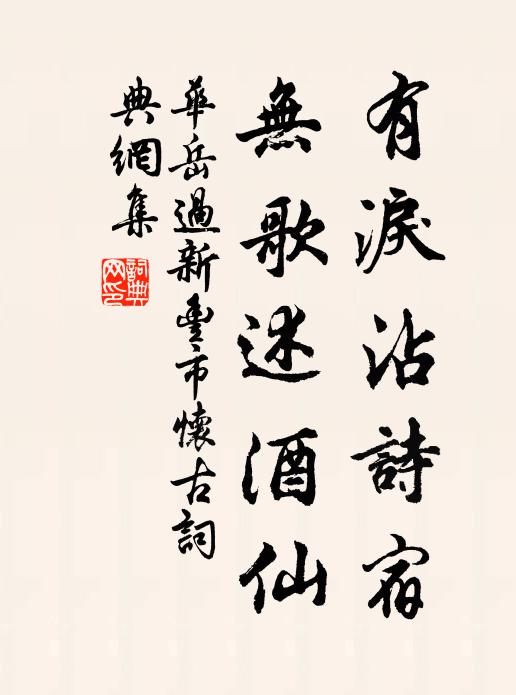 有淚沾詩宿
無歌述酒仙
華岳過新豐市懷古詞
典網集
詞典網印